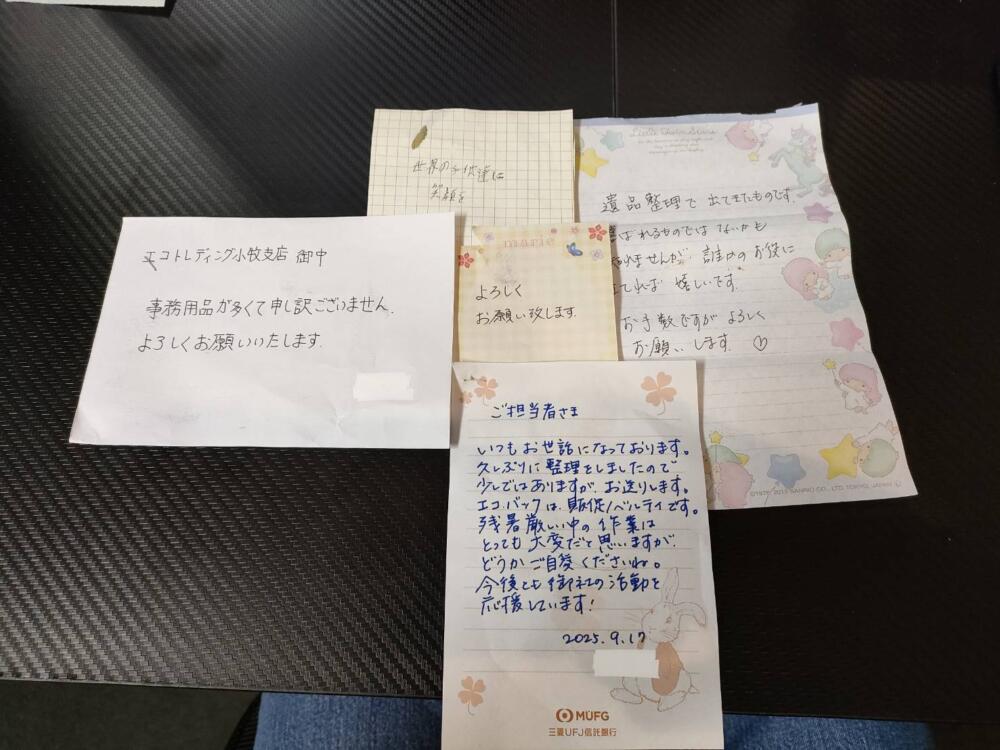 世界の子供達に
笑顔を
エコトレディング小牧支店 御中
事務用品が多くて申し訳ございません.
よろしくお願いいたします.
よろしく
お願い致します.
Little Twin Stars
遺品整理で出てきたものです.
ばれるものではないかも
れませんが、誰かのお役に
てれば 嬉しいです.
お手数ですが よろしく
お願いします. ♡
©1976, 2015 SANRIO CO., LTD. TOKYO, JAPAN
ご担当者さま
いつもお世話になっております。
久しぶりに整理をしましたので
少しではありますが、お送りします。
エコバックは、販促ノベルティです。
残暑厳しい中の作業は
とっても大変だと思いますが、
どうかご自愛くださいね。
今後とも御社の活動を
応援しています!
2025.9.17
MUFG
三菱UFJ信託銀行